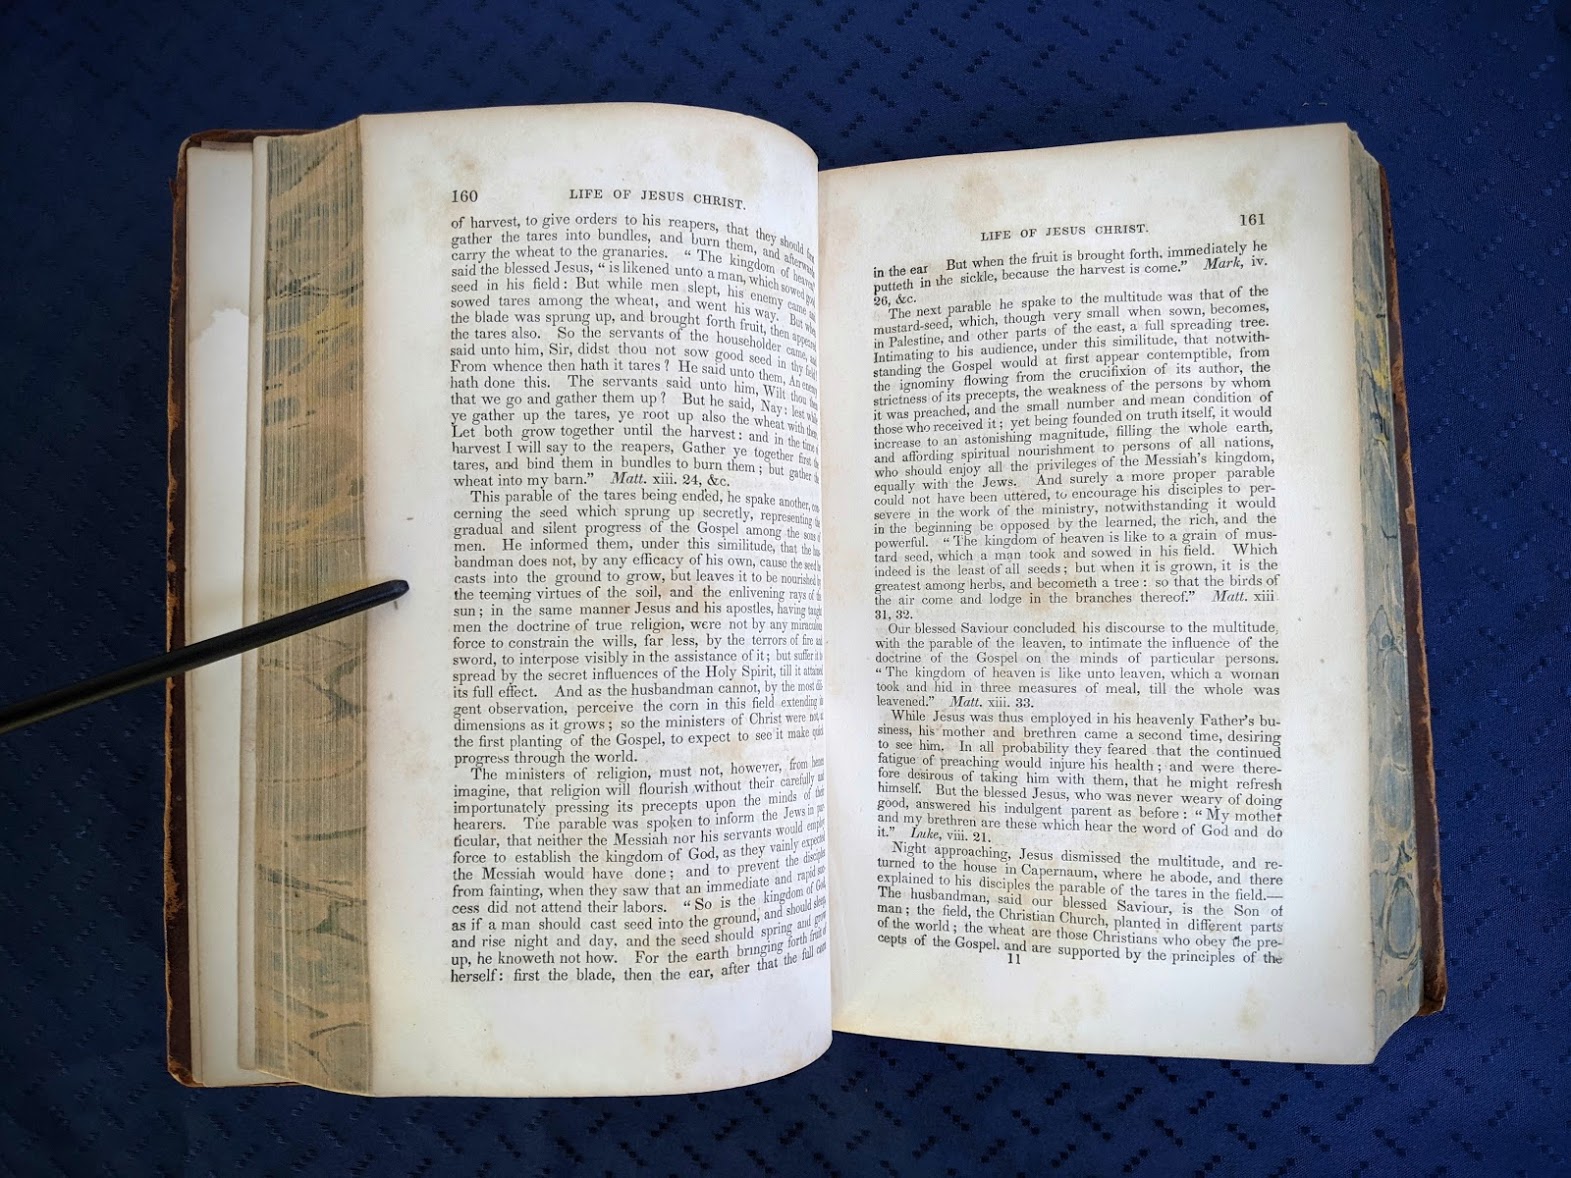 160 LIFE OF JESUS CHRIST.
of harvest, to give orders to his reapers, that they should first
gather the tares into bundles, and burn them, and afterwards
carry the wheat to the granaries. “ The kingdom of heaven,”
said the blessed Jesus, “ is likened unto a man, which sowed good
seed in his field : But while men slept, his enemy came and
sowed tares among the wheat, and went his way. But when
the blade was sprung up, and brought forth fruit, then appeared
the tares also. So the servants of the householder came, and
said unto him, Sir, didst thou not sow good seed in thy field?
From whence then hath it tares ? He said unto them, An enemy
hath done this. The servants said unto him, Wilt thou then
that we go and gather them up ? But he said, Nay: lest while
ye gather up the tares, ye root up also the wheat with them.
Let both grow together until the harvest : and in the time of
harvest I will say to the reapers, Gather ye together first the
tares, and bind them in bundles to burn them ; but gather the
wheat into my barn.” Matt. xiii. 24, &c.
This parable of the tares being ended, he spake another, con-
cerning the seed which sprung up secretly, representing the
gradual and silent progress of the Gospel among the sons of
men. He informed them, under this similitude, that the hus-
bandman does not, by any efficacy of his own, cause the seed he
casts into the ground to grow, but leaves it to be nourished by
the teeming virtues of the soil, and the enlivening rays of the
sun ; in the same manner Jesus and his apostles, having taught
men the doctrine of true religion, were not by any miraculous
force to constrain the wills, far less, by the terrors of fire and
sword, to interpose visibly in the assistance of it ; but suffer it to
spread by the secret influences of the Holy Spirit, till it attained
its full effect. And as the husbandman cannot, by the most dili-
gent observation, perceive the corn in this field extending in
dimensions as it grows ; so the ministers of Christ were not, at
the first planting of the Gospel, to expect to see it make quick
progress through the world.
The ministers of religion, must not, however, from hence
imagine, that religion will flourish without their carefully and
importunately pressing its precepts upon the minds of their
hearers. The parable was spoken to inform the Jews in par-
ticular, that neither the Messiah nor his servants would employ
force to establish the kingdom of God, as they vainly expected
the Messiah would have done ; and to prevent the disciples
from fainting, when they saw that an immediate and rapid suc-
cess did not attend their labors. “ So is the kingdom of God,
as if a man should cast seed into the ground, and should sleep,
and rise night and day, and the seed should spring and grow
up, he knoweth not how. For the earth bringing forth fruit of
herself : first the blade, then the ear, after that the full corn
LIFE OF JESUS CHRIST. 161
in the ear But when the fruit is brought forth. immediately he
putteth in the sickle, because the harvest is come.” Mark, iv.
26, &c.
The next parable he spake to the multitude was that of the
mustard-seed, which, though very small when sown, becomes,
in Palestine, and other parts of the east, a full spreading tree.
Intimating to his audience, under this similitude, that notwith-
standing the Gospel would at first appear contemptible, from
the ignominy flowing from the crucifixion of its author, the
strictness of its precepts, the weakness of the persons by whom
it was preached, and the small number and mean condition of
those who received it ; yet being founded on truth itself, it would
increase to an astonishing magnitude, filling the whole earth,
and affording spiritual nourishment to persons of all nations,
who should enjoy all the privileges of the Messiah's kingdom,
equally with the Jews. And surely a more proper parable
could not have been uttered, to encourage his disciples to per-
severe in the work of the ministry, notwithstanding it would
in the beginning be opposed by the learned, the rich, and the
powerful. “ The kingdom of heaven is like to a grain of mus-
tard seed, which a man took and sowed in his field. Which
indeed is the least of all seeds ; but when it is grown, it is the
greatest among herbs, and becometh a tree : so that the birds of
the air come and lodge in the branches thereof.” Matt. xiii
31, 32.
Our blessed Saviour concluded his discourse to the multitude,
with the parable of the leaven, to intimate the influence of the
doctrine of the Gospel on the minds of particular persons.
“ The kingdom of heaven is like unto leaven, which a woman
took and hid in three measures of meal, till the whole was
leavened.” Matt. xiii. 33.
While Jesus was thus employed in his heavenly Father's bu-
siness, his mother and brethren came a second time, desiring
to see him. In all probability they feared that the continued
fatigue of preaching would injure his health ; and were there-
fore desirous of taking him with them, that he might refresh
himself. But the blessed Jesus, who was never weary of doing
good, answered his indulgent parent as before : “ My mother
and my brethren are these which hear the word of God and do
it.” Luke, viii. 21.
Night approaching, Jesus dismissed the multitude, and re-
turned to the house in Capernaum, where he abode, and there
explained to his disciples the parable of the tares in the field.—
The husbandman, said our blessed Saviour, is the Son of
man ; the field, the Christian Church, planted in different parts
of the world ; the wheat are those Christians who obey the pre-
cepts of the Gospel. and are supported by the principles of the
11